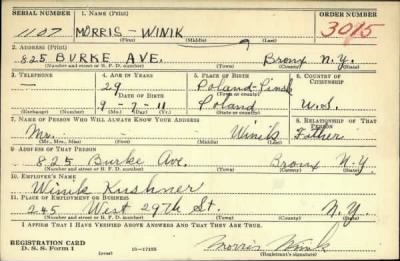 SERIAL NUMBER 1. NAME (Print) ORDER NUMBER
1107 MORRIS - WINIK 3095
(First) (Middle) (Last)
2. ADDRESS (Print)
825 BURKE AVE. Bronx N.Y.
(Number and street or R. F. D. number) (Town) (County) (State)
3. TELEPHONE 4. AGE IN YEARS 5. PLACE OF BIRTH 6. COUNTRY OF CITIZENSHIP
— 29 Poland-Pinsk
DATE OF BIRTH
9-7-11 Poland U.S.
(Exchange) (Number) (Mo.) (Day) (Yr.) (State or country)
7. NAME OF PERSON WHO WILL ALWAYS KNOW YOUR ADDRESS 8. RELATIONSHIP OF THAT PERSON
Mr. Winik Father
(Mr., Mrs., Miss) (First) (Middle) (Last)
9. ADDRESS OF THAT PERSON
825 Burke Ave. Bronx N.Y.
(Number and street or R. F. D. number) (Town) (County) (State)
10. EMPLOYER'S NAME
Winik Kushner
11. PLACE OF EMPLOYMENT OR BUSINESS
245 West 29th St. N.Y.
(Number and street or R. F. D. number) (Town) (County) (State)
I AFFIRM THAT I HAVE VERIFIED ABOVE ANSWERS AND THAT THEY ARE TRUE.
REGISTRATION CARD
D. S. S. Form 1 16-17105 Morris Winik
(Registrant's signature)